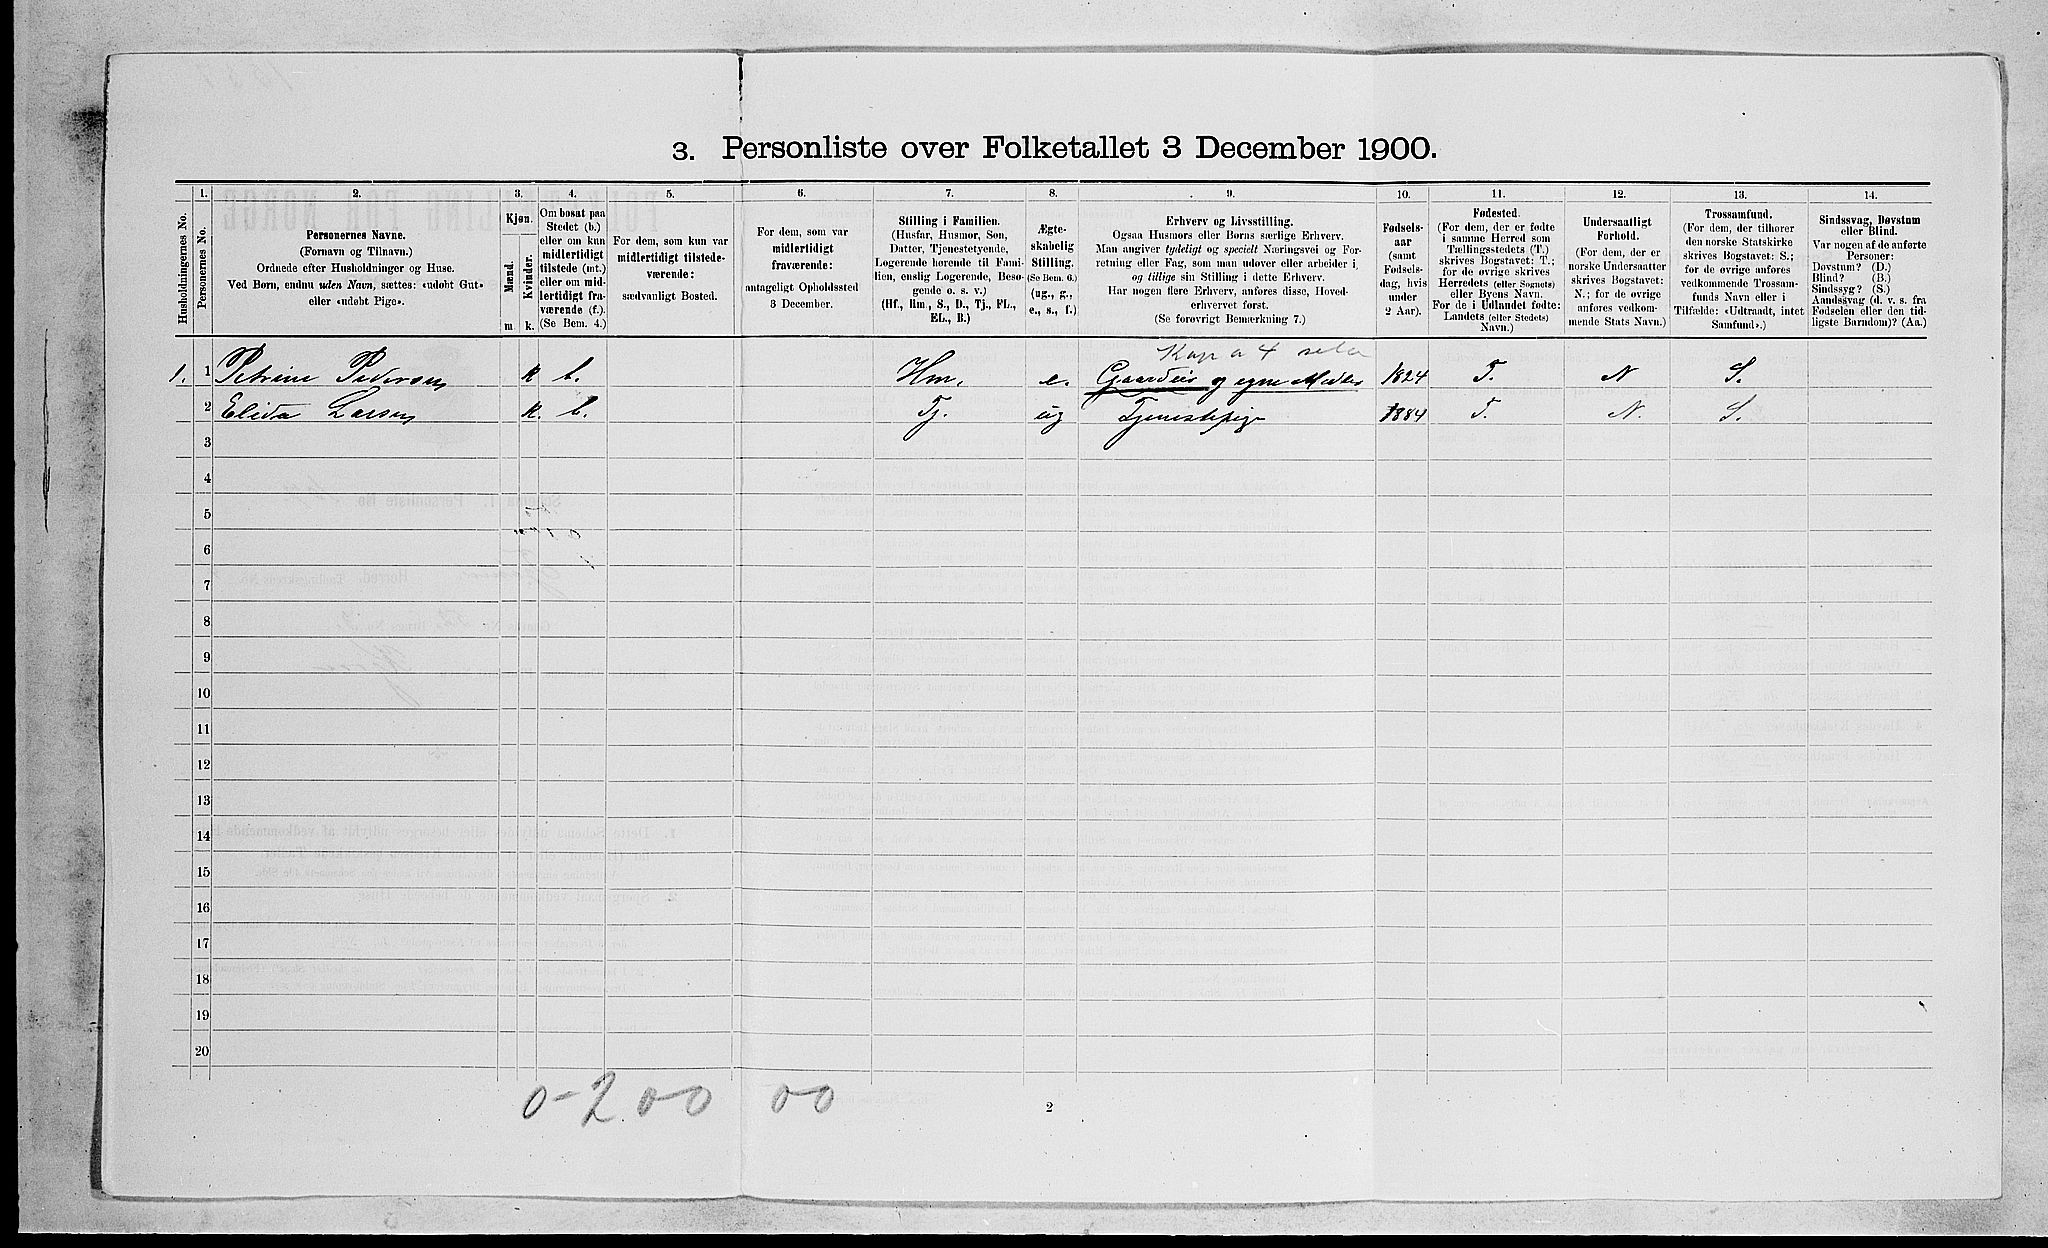 3. Personliste over Folketallet 3 December 1900.
Husholdningernes No.
1.
Personernes No.
2.
Personernes Navne.
(Fornavn og Tilnavn.)
Ordnede efter Husholdninger og Huse.
Ved Børn, endnu uden Navn, sættes: «udøbt Gut»
eller «udøbt Pige».
3.
Kjøn.
Mænd.
Kvinder.
m. k.
4.
Om bosat paa
Stedet (b.)
eller om kun
midlertidigt
tilstede (mt.)
eller om mid-
lertidigt fra-
værende (f.).
(Se Bem. 4.)
5.
For dem, som kun var
midlertidigt tilstede-
værende:
sædvanligt Bosted.
6.
For dem, som var
midlertidigt
fraværende:
antageligt Opholdssted
3 December.
7.
Stilling i Familien.
(Husfar, Husmor, Søn,
Datter, Tjenestetyende,
Logerende hørende til Fami-
lien, enslig Logerende, Besø-
gende o. s. v.)
(Hf., Hm., S., D., Tj., FL.,
EL., B.)
8.
Ægte-
skabelig
Stilling.
(Se Bem. 6.)
(ug., g.,
e., s., f.)
9.
Erhverv og Livsstilling.
Ogsaa Husmors eller Børns særlige Erhverv.
Man angiver tydeligt og specielt Næringsvei og For-
retning eller Fag, som man udøver eller arbeider i,
og tillige sin Stilling i dette Erhverv.
Har nogen flere Erhverv, anføres disse, Hoved-
erhvervet først.
(Se forøvrigt Bemærkning 7.)
10.
Fødsels-
aar
(samt
Fødsels-
dag, hvis
under
2 Aar).
11.
Fødested.
(For dem, der er fødte
i samme Herred som
Tællingsstedets (T.)
skrives Bogstavet: T.;
for de øvrige skrives
Herredets (eller Sognets)
eller Byens Navn.
For de i Udlandet fødte:
Landets (eller Stedets)
Navn.)
12.
Undersaatligt
Forhold.
(For dem, der er
norske Undersaatter
skrives Bogstavet:
N.; for de øvrige
anføres vedkom-
mende Stats Navn.)
13.
Trossamfund.
(For dem, der tilhører
den norske Statskirke
skrives Bogstavet: S.;
for de øvrige anføres
vedkommende Trossam-
funds Navn eller i
Tilfælde: «Udtraadt, intet
Samfund».)
14.
Sindssvag, Døvstum
eller Blind.
Var nogen af de anførte
Personer:
Døvstum? (D.)
Blind? (B.)
Sindssyg? (S.)
Aandssvag (d. v. s. fra
Fødselen eller den tid-
ligste Barndom)? (Aa.)
1. 1 Petrine Pedersen k b. Hm. e. Gaardeier og egne Midler 1824 T. N S.
2 Elida Larsen k. b. Tj. ug Tjenestepige 1884 T. N. S.
3
4
5
6
7
8
9
10
11
12
13
14
15
16
17
18
19
20
0-2 00 00
2